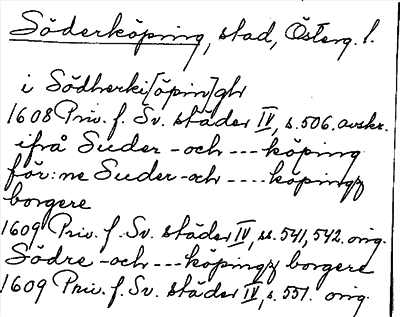 Söderköping, stad, Österg. l.
i Södherki[öpin]gh
1608 Priv. f. Sv. städer IV, s. 506. avskr.
ifrå Suder - och --- köping
för:ne Suder - och --- köpings
borgere
1609 Priv. f. Sv. städer IV, ss. 541, 542. orig.
Södre - och --- köpings borgere
1609 Priv. f. Sv. städer IV, s. 551. orig.